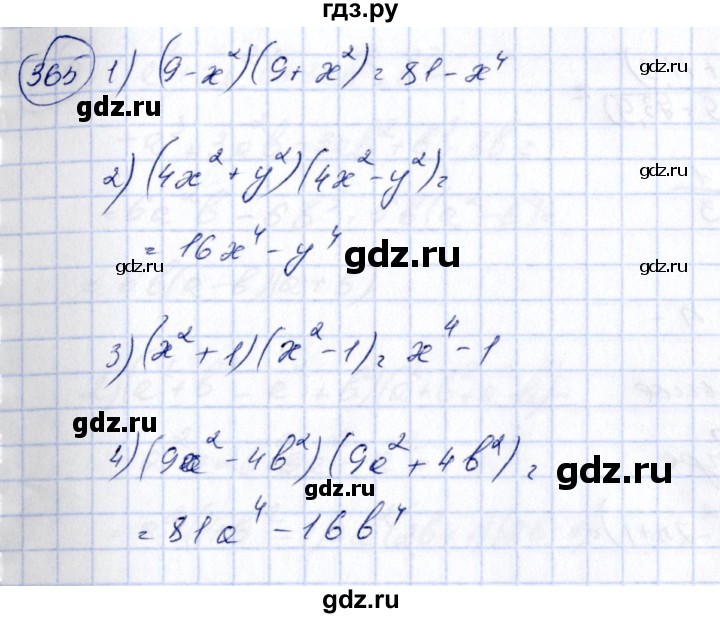 гдз.ру
365 1) (9-x²)(9+x²)=81-x⁴
gdz.ru
gdz.ru
2) (4x²+y²)(4x²-y²)=
=16x⁴-y⁴
gdz.ru
gdz.ru
gdz.ru
3) (x²+1)(x²-1)=x⁴-1
gdz.ru
gdz.ru
4) (9a²-4b²)(9a²+4b²)=
gdz.ru
gdz.ru
=81a⁴-16b⁴
gdz.ru